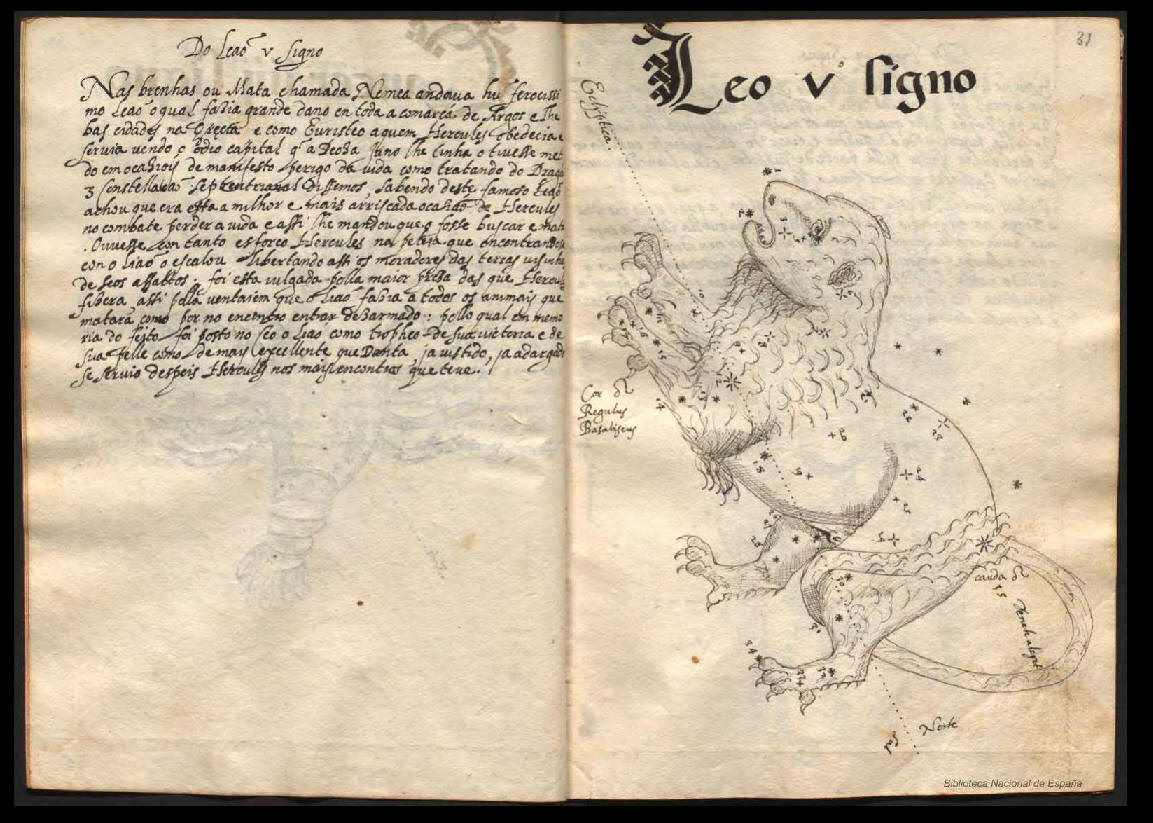 Do Leaõ v signo
Nas brenhas ou Mata chamada Nemea andaua hu ferocissi
mo Leaõ o qual fazia grande dano em toda a comarca de Argos e The
bas cidades na Grecia e como Euristeo a quem Hercules obedecia e
seruia vendo o odio capital q̃ a Deosa Juno lhe tinha o tiuesse met
do em ocazioĩs de manifesto perigo da vida como tratando do Drago
3 constellacaõ septentrional dissemos, sabendo deste famoso Leaõ
achou que era essa a milhor e mais arriscada ocaziaõ de Hercules
no combate perder a vida e assi lhe mandou que o fosse buscar e mata
. Ouuesse con tanto esforco Hercules na peleja que encontrandose
con o Liaõ o escalou libertando assi os moradores das terras uisinhas
de seos assaltos: foi esta iulgada polla maior presa das que Hercul
fizera assi polla ventajem que o Liaõ fazia a todos os animais que
matara como por no encontro entrar dezarmado: pollo qual em memo
ria do feito foi posto no ceo o Liaõ como tropheo de sua victoria e de
sua pelle como de mais excellente que Danta, ja vistido, ja adargado
se seruio despois Hercules nos mais encontros que teve.
31
Leo v signo
Eclyptica
Cor ♌
Regulus
Basaliscus
cauda ♌
Norte
Biblioteca Nacional de España